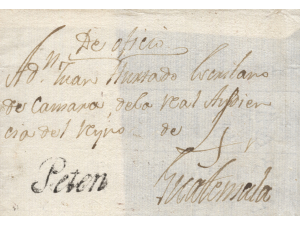 De oficio
A Dn. Juan Hurtado Escribano
de Camara de la real Audien
cia del Reyno de
Peten
Guatemala